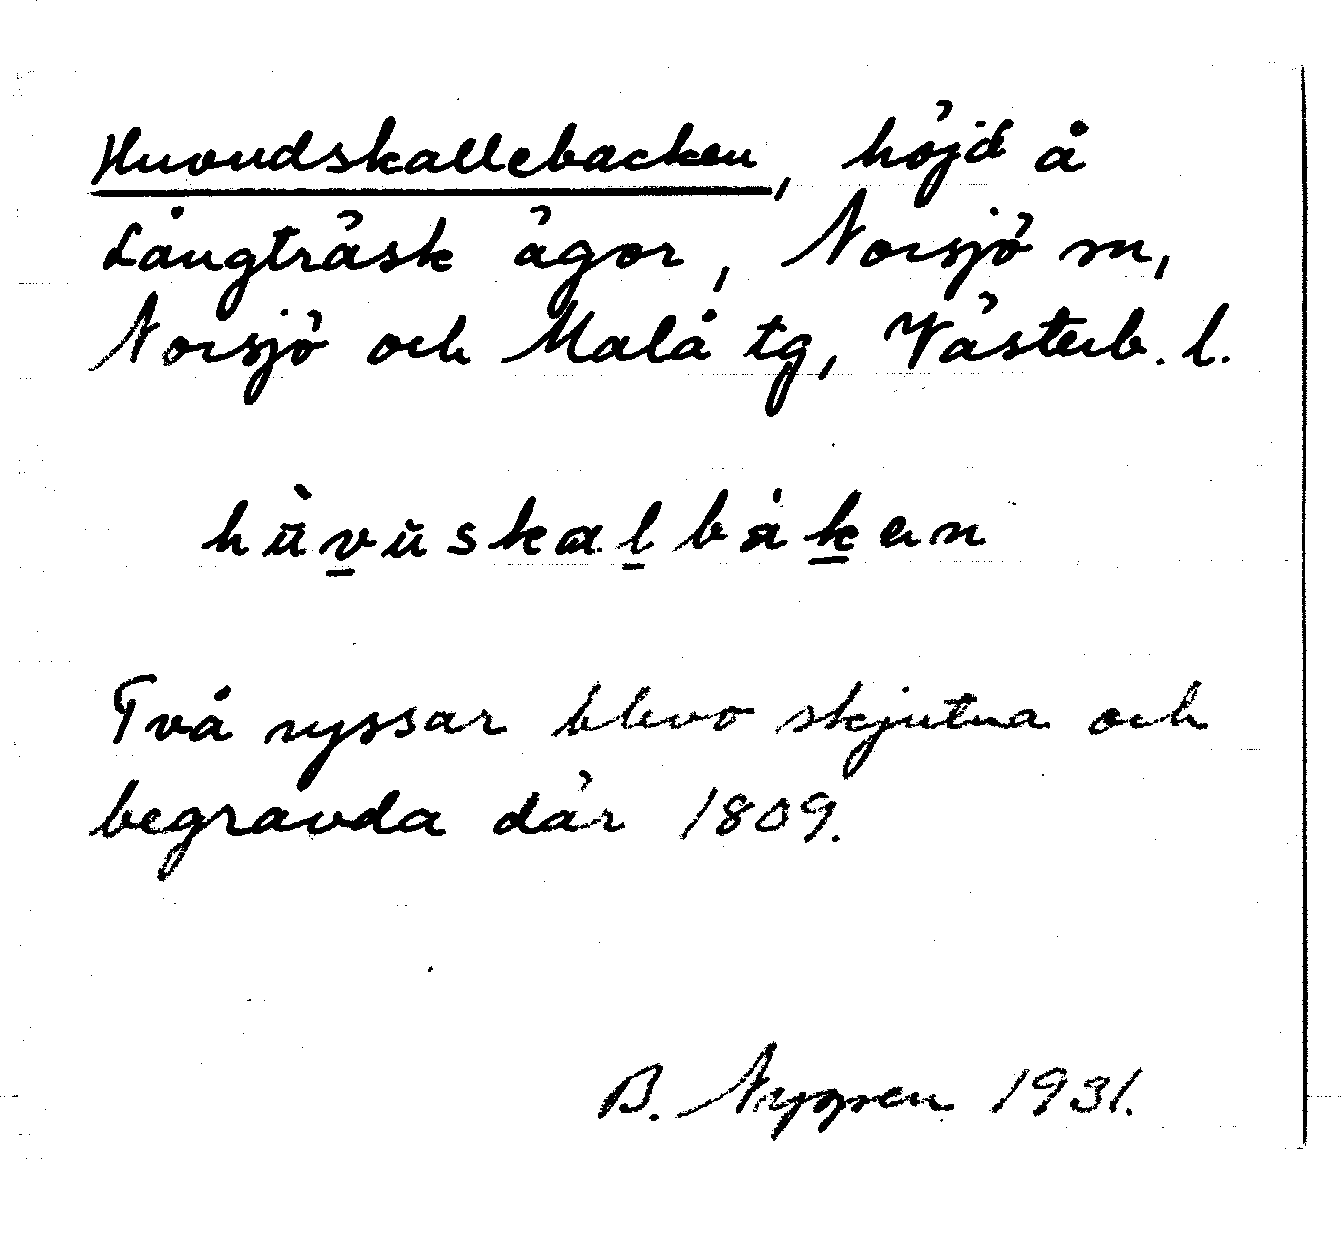 Huvudskallebacken, höjd å
Långträsk ägor, Norsjö sn,
Norsjö och Malå tg, Västerb. l.
hùvŭskalbáken
Två ryssar blevo skjutna och
begravda där 1809.
B. 1931.